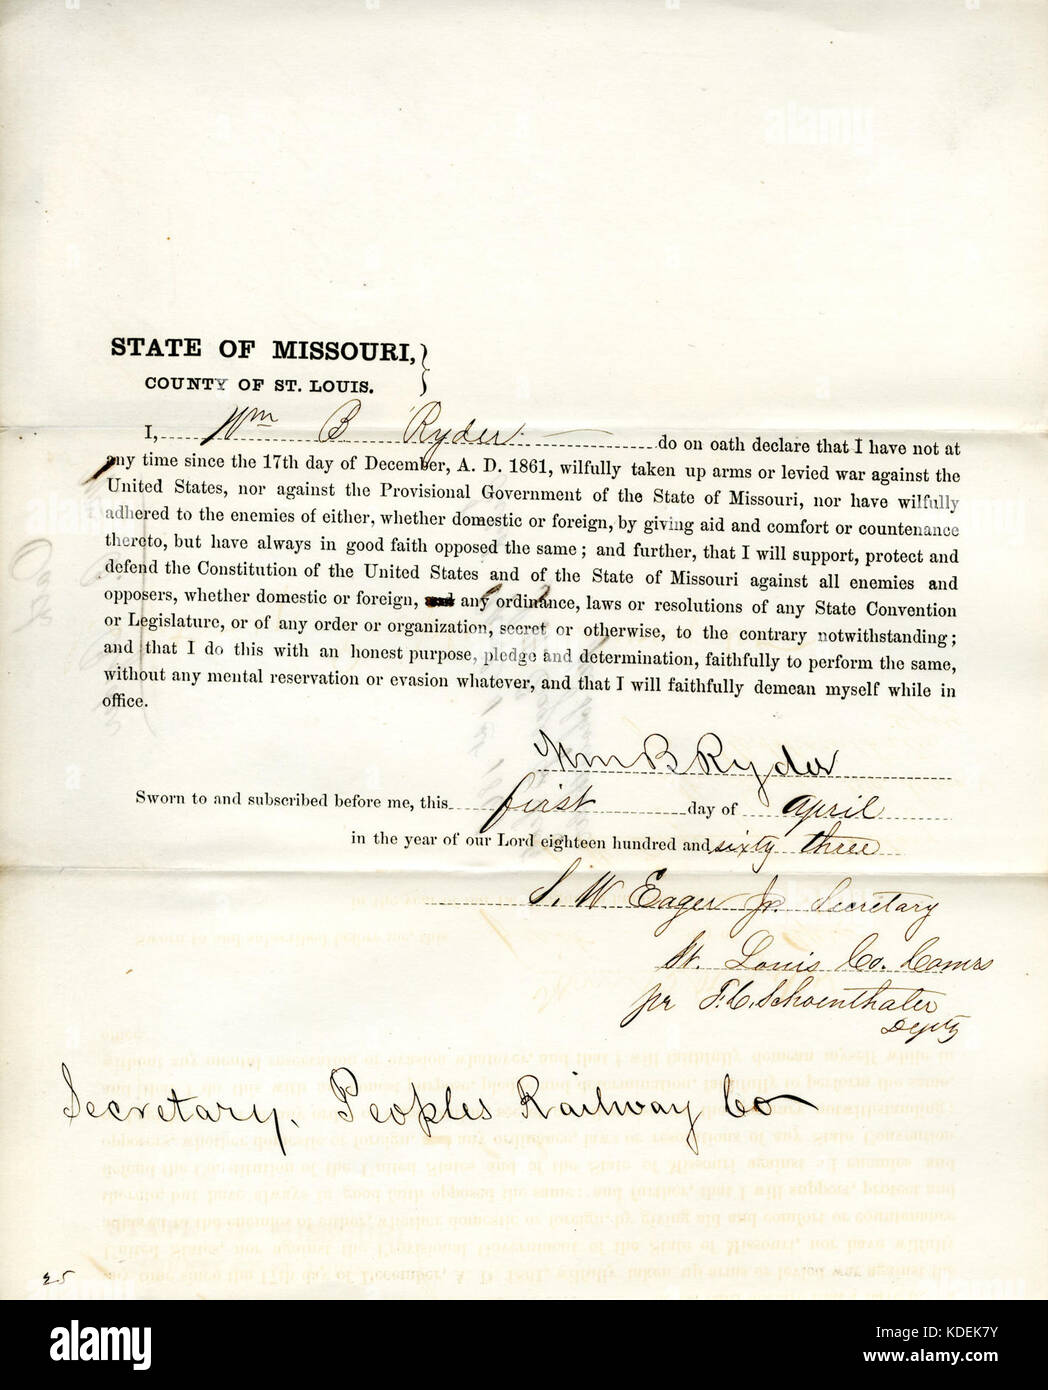 STATE OF MISSOURI,
COUNTY OF ST. LOUIS.
I, Wm B Ryder do on oath declare that I have not at
any time since the 17th day of December, A. D. 1861, wilfully taken up arms or levied war against the
United States, nor against the Provisional Government of the State of Missouri, nor have wilfully
adhered to the enemies of either, whether domestic or foreign, by giving aid and comfort or countenance
thereto, but have always in good faith opposed the same; and further, that I will support, protect and
defend the Constitution of the United States and of the State of Missouri against all enemies and
opposers, whether domestic or foreign, any ordinance, laws or resolutions of any State Convention
or Legislature, or of any order or organization, secret or otherwise, to the contrary notwithstanding;
and that I do this with an honest purpose, pledge and determination, faithfully to perform the same,
without any mental reservation or evasion whatever, and that I will faithfully demean myself while in
office.
Wm B Ryder
Sworn to and subscribed before me, this first day of April
in the year of our Lord eighteen hundred and sixty three
S. W Eager Jr. Secretary
St. Louis Co. Comrs
pr F. C. Schoenthaler
Depty
Secretary, Peoples Railway Co
25
alamy
Image ID: KDEK7Y
www.alamy.com